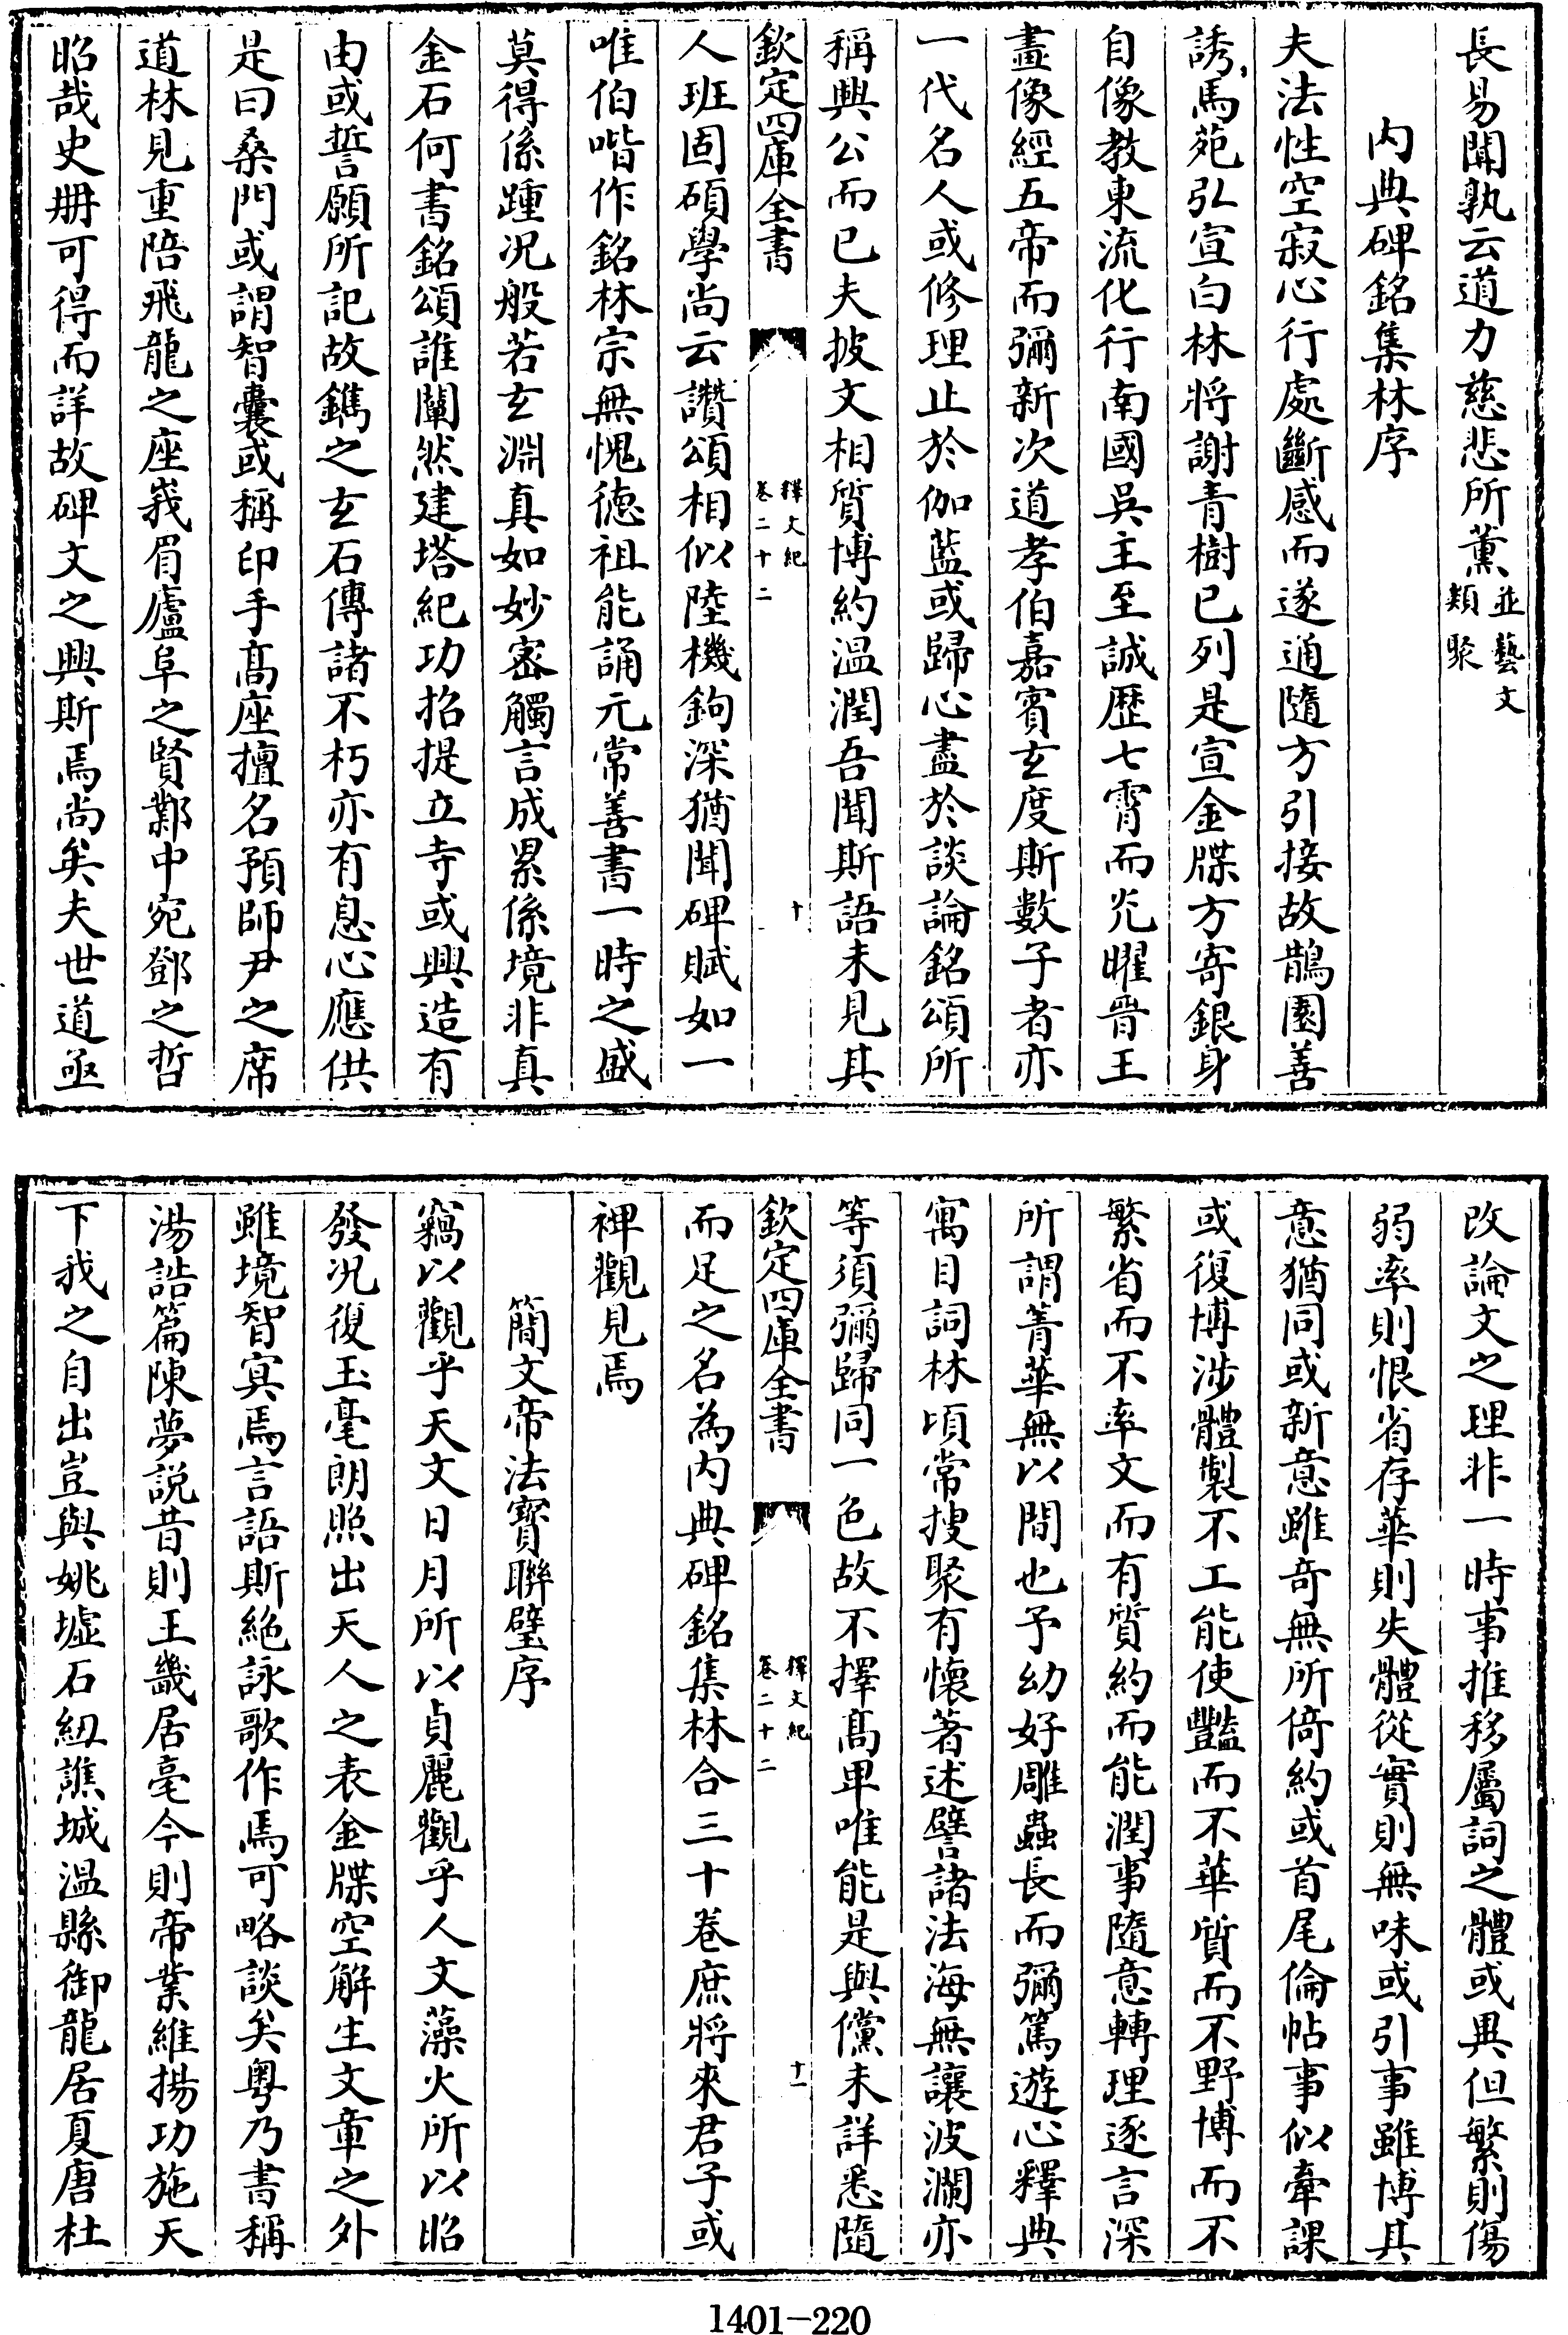 長易聞孰云道力慈悲所薰並藝文類聚
内典碑銘集林序
夫法性空寂心行處斷感而遂通隨方引接故鵲園善
誘馬苑弘宣白林將謝青樹已列是宣金牒方寄銀身
自像教東流化行南國吳主至誠歷七霄而光曜晉王
畫像經五帝而彌新次道孝伯嘉賓玄度斯數子者亦
一代名人或修理止於伽藍或歸心盡於談論銘頌所
稱興公而已夫披文相質博約温潤吾聞斯語未見其
欽定四庫全書 釋文紀 卷二十二 十
人班固碩學尚云讚頌相似陸機鉤深猶聞碑賦如一
唯伯喈作銘林宗無愧德祖能誦元常善書一時之盛
莫得係踵况般若玄淵真如妙密觸言成累係境非真
金石何書銘頌誰闡然建塔紀功招提立寺或興造有
由或誓願所記故鐫之玄石傳諸不朽亦有息心應供
是曰桑門或謂智囊或稱印手髙座擅名預師尹之席
道林見重陪飛龍之座峩眉廬阜之賢鄴中宛鄧之哲
昭哉史册可得而詳故碑文之興斯焉尚矣夫世道亟
改論文之理非一時事推移屬詞之體或異但繁則傷
弱率則恨省存華則失體從實則無味或引事雖博其
意猶同或新意雖奇無所倚約或首尾倫帖事似牽課
或復博涉體製不工能使豔而不華質而不野博而不
繁省而不率文而有質約而能潤事隨意轉理逐言深
所謂菁華無以間也予幼好雕蟲長而彌篤遊心釋典
寓目詞林頃常搜聚有懷著述譬諸法海無讓波瀾亦
等須彌歸同一色故不擇髙卑唯能是與儻未詳悉隨
欽定四庫全書 釋文紀 卷二十二 十一
而足之名為内典碑銘集林合三十卷庶將來君子或
裨觀見焉
簡文帝法寶聯璧序
竊以觀乎天文日月所以貞麗觀乎人文藻火所以昭
發况復玉毫朗照出天人之表金牒空解生文章之外
雖境智寘焉言語斯絶詠歌作焉可略談矣粤乃書稱
湯誥篇陳夢説昔則王畿居亳今則帝業維揚功施天
下我之自出豈與姚墟石紐譙城温縣御龍居夏唐杜
1401-220